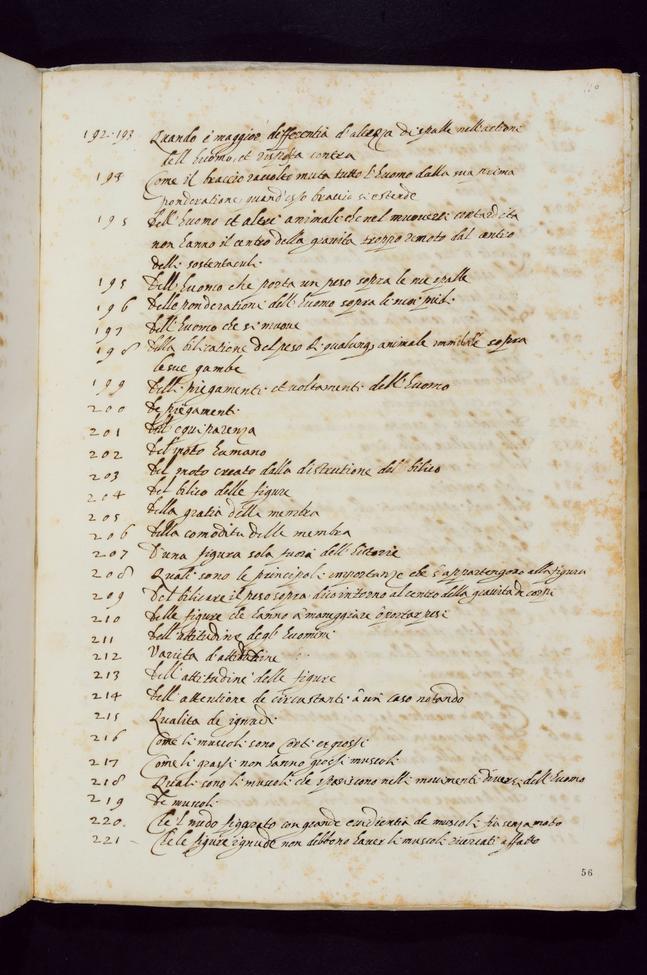 192·193 Quando è maggior differentia d'altezza di spalle nell'actione
dell'huomo, et risposta contra
194 Come il braccio raccolto muta tutto l'huomo dalla sua prima
ponderatione, quand'esso braccio si estende
195 Dell'huomo et altri animali che nel muoversi con tardità
non hanno il centro della gravità troppo remoto dal centro
delli sostentaculi
195 Dell'huomo che porta un peso sopra le sue spalle
196 Della ponderatione dell'huomo sopra le suoi piedi
197 Dell'huomo che si muove
198 Della bilicatione del peso di qualunq, animale immobile sopra
le sue gambe
199 Delli piegamenti et voltamenti dell'huomo
200 De piegamenti
201 Dell'equiparenza
202 Del moto humano
203 Del moto creato dalla distrutione del bilico
204 Del bilico delle figure
205 Della gratia delle membra
206 Della comodità delle membra
207 D'una figura sola fuora dell'historie
208 Quali sono le principali importanze che s'appartengono alla figura
209 Del bilicare il peso intorno al centro della gravità de corpi
210 Delle figure che hanno a maneggiare o portar pesi
211 Dell'attitudine degli huomini
212 Varietà d'attitudine
213 Dell'attitudine delle figure
214 Dell'attentione de circustanti à un caso notando
215 Qualità de ignudi
216 Come li muscoli sono corti e grossi
217 Come li grassi non hanno grossi muscoli
218 Quali sono li muscoli che spariscono nelli movimenti diversi dell'huomo
219 De muscoli
220. Che'l nudo figgurato con grande evidentia de muscoli fia senza moto
221 Che le figure ignude non debbono haver li muscoli ricercati affatto
56